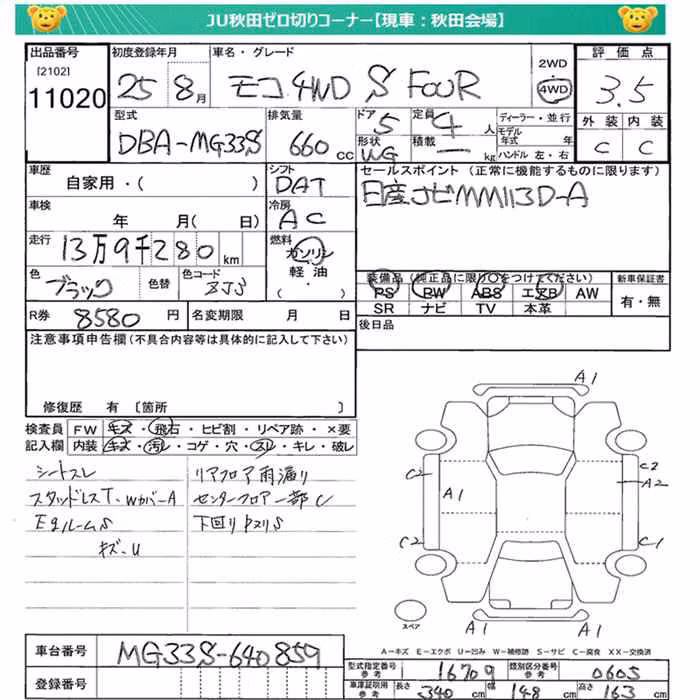 JU秋田ゼロ切りコーナー【現車：秋田会場】
出品番号
[2102]
11020
初度登録年月
25 8月
車名・グレード
モコ 4WD S FOUR
2WD
4WD
評価点
3.5
外装 内装
C C
型式
DBA-MG33S
排気量
660 cc
ドア
5
定員
4 人
形状
WG
積載
— kg
ディーラー・並行
モデル年式 年
ハンドル 左・右
車歴
自家用・( )
シフト
DAT
セールスポイント (正常に機能するものに限ります)
日産ナビMM113D-A
車検
年 月( 日)
冷房
AC
走行
13万9千280 km
燃料
ガソリン
軽油・
( )
色
ブラック
色替
色コード
ZJS
装備品(純正品に限り○をつけてください)
PS PW ABS エアB AW
SR ナビ TV 本革
新車保証書
有・無
R券 8580 円
名変期限 月 日
後日品
注意事項申告欄(不具合内容等は具体的に記入して下さい)
修復歴 有 〔箇所 〕
検査員記入欄
FW キズ・飛石・ヒビ割・リペア跡・×要
内装 キズ・汚レ・コゲ・穴・スレ・キレ・破レ
シートスレ
スタッドレスT・WカバーA
EgルームS
キズ-U
リアフロア雨漏り
センターフロア一部C
下回りサビS
A1
C2
A1
C2
C2
A2
C1
A1
スペア
A-キズ E-エクボ U-凹み W-補修跡 S-サビ C-腐食 XX-交換済
車台番号
MG33S-640859
登録番号
型式指定番号
参考
16709
類別区分番号
参考
0605
車庫証明用
参考
長さ 340 cm
幅 148 cm
高さ 163 cm